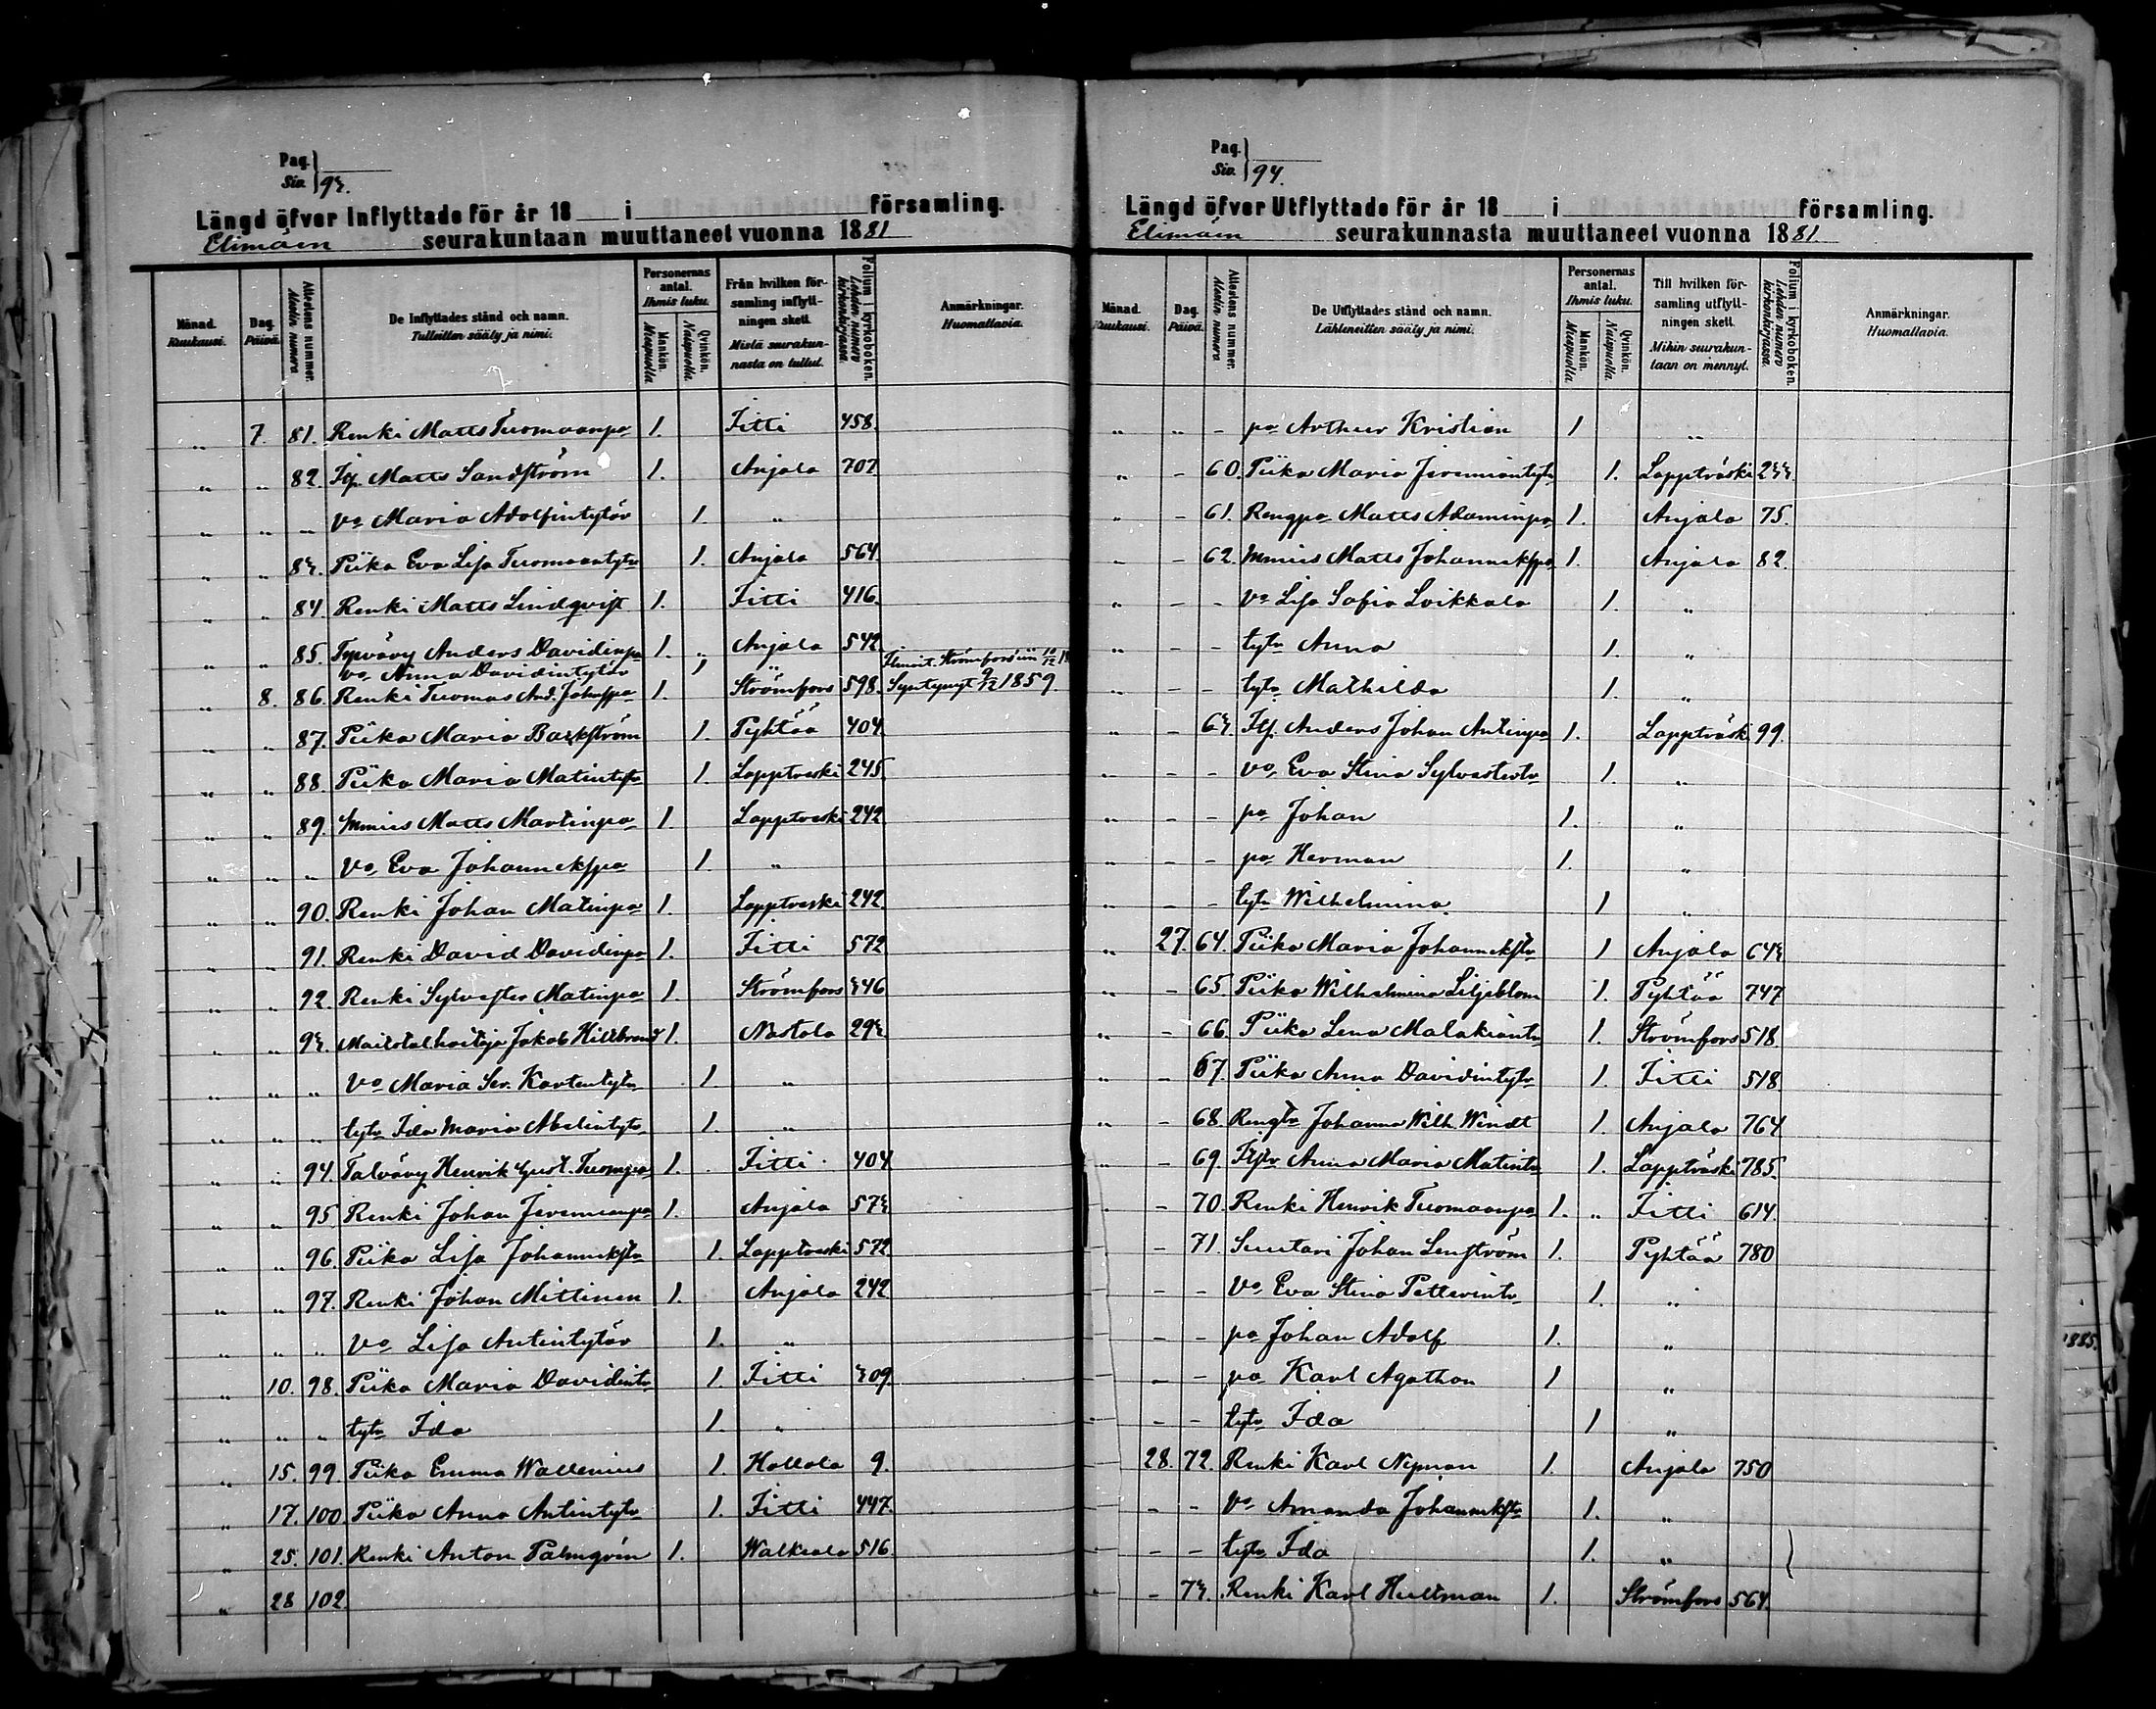 Pag.
Siv. 93.
Längd öfver Inflyttade för år 18 i församling.
Elimäen seurakuntaan muuttaneet vuonna 1881
Månad. Kuukausi.
Dag. Päivä.
Attestens nummer. Attestin numero
De Inflyttades stånd och namn. Tulleitten sääty ja nimi.
Personernas antal. Ihmis luku.
Mankön. Miespuolia
Qvinkön. Naispuolia
Från hvilken församling inflyttningen skett. Mistä seurakunnasta on tullut.
Folium i kyrkoboken. Lehden numero kirkonkirjassa.
Anmärkningar. Huomattavia.
„ 7. 81. Renki Matts Tuomaanpa 1. Iitti 458.
„ „ 82. Itp. Matts Sandström 1. Anjala 707
„ „ „ Vo Maria Adolfintytär 1. „
„ „ 83. Piika Eva Lisa Tuomaantytr 1. Anjala 564
„ „ 84. Renki Matts Lindqvist 1. Iitti 416.
„ „ 85. Typvävy Anders Davidinpa 1. „ Anjala 542
vo Anna Davidintytär 1 „
„ 8. 86. Renki Tuomas And. Johaspa 1. Strömfors 598. Syntynyt 9/12 1859.
„ „ 87. Piika Maria Backström 1. Pyhtää 404.
„ „ 88. Piika Maria Matintytr 1. Lapptreski 245.
„ „ 89. Mmies Matts Martinpa 1. Lapptreski 242
„ „ „ Vo Eva Johannekspa 1. „
„ „ 90. Renki Johan Matinpa 1. Lapptreski 242.
„ „ 91. Renki David Davidinpa 1. Iitti 572
„ „ 92. Renki Sylvester Matinpa 1. Strömfors 346
„ „ 93. Maitotal.hoitaja Jakob Hillbrand 1. Nastola 293.
„ „ „ Vo Maria Ser. Kartentytr 1. „
„ „ „ tytr Ida Maria Abelintytr 1. „
„ „ 94. Talvävy Henrik Gust. Tuompa 1. Iitti 404
„ „ 95. Renki Johan Jeremianpa 1. Anjala 573
„ „ 96. Piika Lisa Johannekstr 1. Lapptreski 572
„ „ 97. Renki Johan Mettinen 1. Anjala 242
„ „ „ Vo Lisa Antintytär 1. „
„ 10. 98. Piika Maria Davidintr 1. Iitti 309.
„ „ „ tytr Ida 1. „
„ 15. 99. Piika Emma Wallenius 1. Hollola 9.
„ 17. 100. Piika Anna Antintytr 1. Iitti 447.
„ 25. 101. Renki Anton Palmgrén 1. Walkeala 516.
„ 28 102.
Pag.
Siv. 94.
Längd öfver Utflyttade för år 18 i församling.
Elimäen seurakunnasta muuttaneet vuonna 1881.
Månad. Kuukausi.
Dag. Päivä.
Attestens nummer. Attestin numero
De Utflyttades stånd och namn. Lähteneitten sääty ja nimi.
Personernas antal. Ihmis luku.
Mankön. Miespuolia
Qvinkön. Naispuolia
Till hvilken församling utflyttningen skett. Mihin seurakuntaan on mennyt.
Folium i kyrkoboken. Lehden numero kirkonkirjassa.
Anmärkningar. Huomattavia.
„ „ - pa Arthur Kristian 1 „
„ - 60. Piika Maria Jeremiantytr 1. Lappträski 233.
„ - 61. Rengpa Matts Adaminpa 1. Anjala 75.
„ - 62. Mmies Matts Johannekspa 1. Anjala 82.
„ - - Vo Lisa Sofia Loikkala 1. „
„ - - tytr Anna 1. „
„ - - tytr Mathilda 1. „
„ - 63. Itp. Anders Johan Antinpa 1. Lappträsk 99.
„ - - Vo Eva Stina Sylvestertr 1. „
„ - - pa Johan 1. „
„ - - pa Herman 1. „
„ - - tytr Wilhelmina 1 „
„ 27. 64. Piika Maria Johannekstr 1 Anjala 643
„ - 65. Piika Wilhelmina Liljeblom 1. Pyhtää 747
„ - 66. Piika Lena Malakiantr 1. Strömfors 518.
„ - 67. Piika Anna Davidintytr 1. Iitti 518
„ - 68. Rengtr Johanna Wilh. Windt 1. Anjala 764
- 69. Itptr Anna Maria Matintr 1. Lappträski 785.
- 70. Renki Henrik Tuomaanpa 1. „ Iitti 614.
- 71. Suutari Johan Lenström 1. Pyhtää 780
- - Vo Eva Stina Petterintr 1. „
- - pa Johan Adolf 1. „
- - pa Karl Agathon 1 „
- - tytr Ida 1 „
28. 72. Renki Karl Nyman 1. Anjala 750
- - Vo Amanda Johannekstr 1. „
- - tytr Ida 1. „
- 73. Renki Karl Hultman 1. Strömfors 564.
1885.